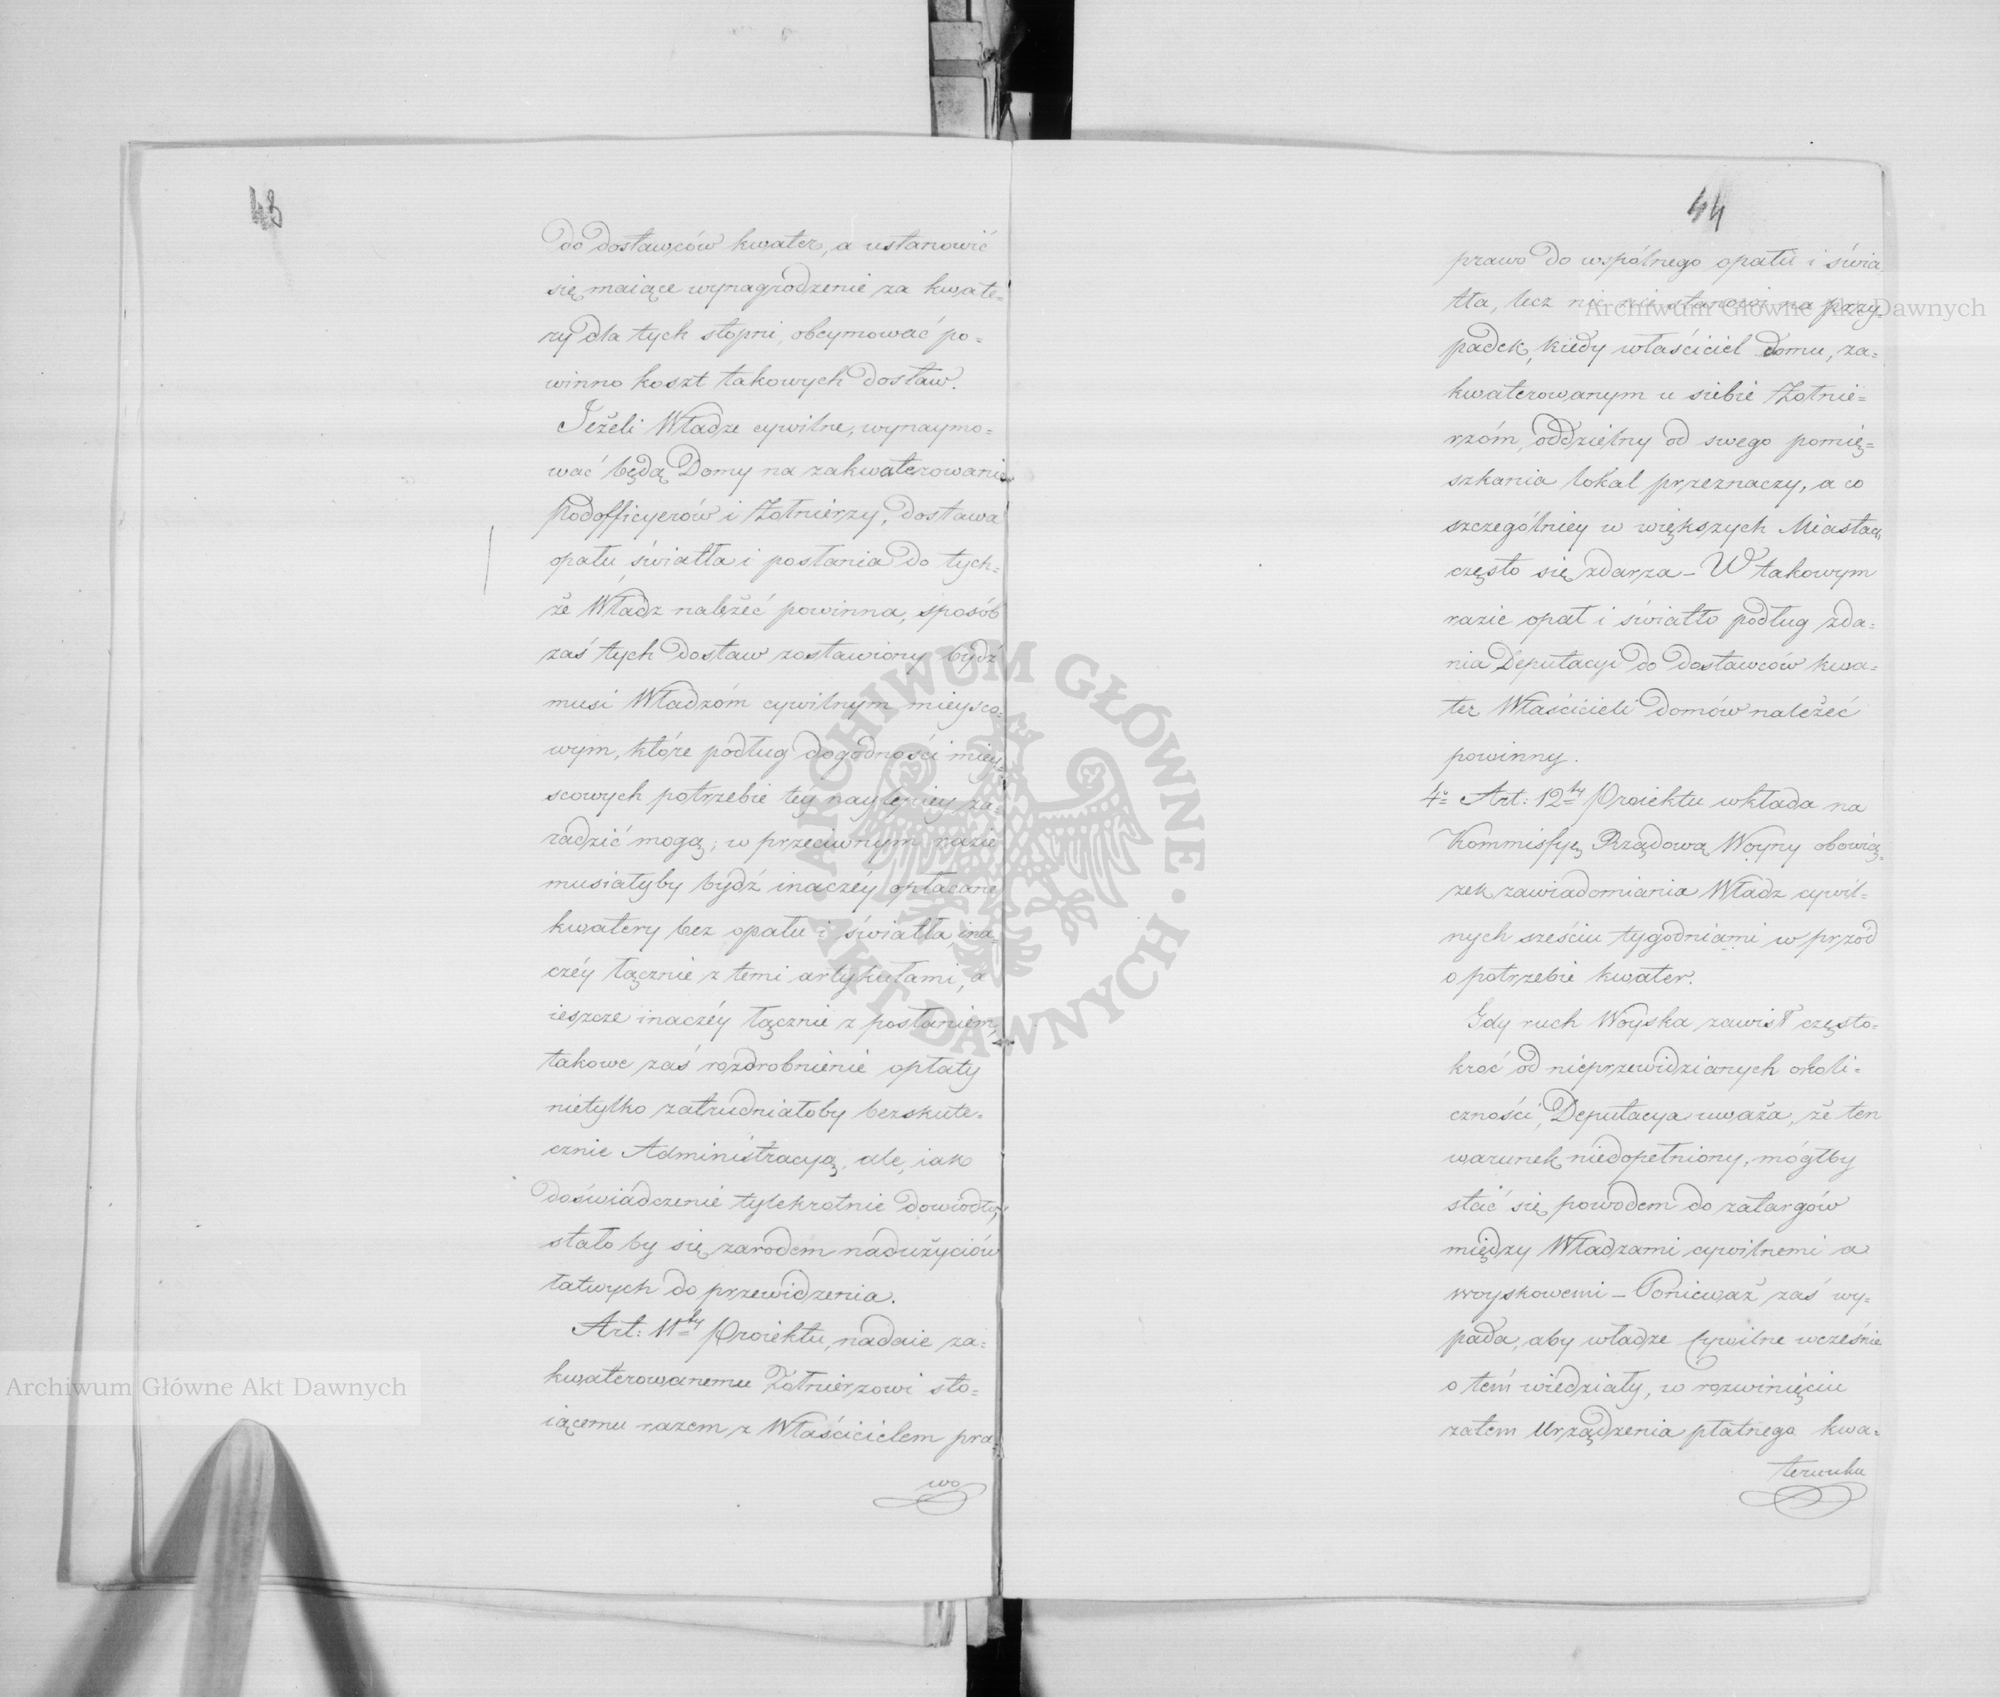 43
do dostawców kwater, a ustanowić
się maiące wynagrodzenie za kwate=
ry dla tych stopni, obeymować po=
winno koszt takowych dostaw.
Jeżeli Władze cywilne, wynaymo=
wać będą Domy na zakwaterowanie
Podofficyerów i Żołnierzy, dostawa
opału światła i posłania do tych=
że Władz należeć powinna, sposób
zaś tych dostaw zostawiony bydź
musi Władzóm cywilnym mieysco=
wym, które podług dogodności miey=
scowych potrzebie téy naylepiey za=
radzić mogą; w przeciwnym razie
musiałyby bydź inaczéy opłacane
kwatery bez opału i światła, ina=
czéy łącznie z temi artykułami, a
ieszcze inaczéy łącznie z posłaniem,
takowe zaś rozdrobnienie opłaty
nietylko zatrudniałoby bezskute=
cznie Administracyą, ale, iak
doświadczenie tylekrotnie dowiodło,
stało by się zarodem nadużyciów
łatwych do przewidzenia.
Art: 11ty Proiektu, nadaie za=
kwaterowanemu Żołnierzowi sto=
iącemu razem z Właścicielem pra=
wo
44
prawo do wspólnego opału i świa=
tła, lecz nic nie stanowi na przy=
padek, kiedy właściciel domu, za=
kwaterowanym u siebie Żołnie=
rzóm, oddzielny od swego pomię=
szkania lokal przeznaczy, a co
szczególniey w większych Miastach
często się zdarza – W takowym
razie opał i światło podług zda=
nia Deputacyi do dostawców kwa=
ter Właścicieli domów należeć
powinny.
4o Art: 12ty Proiektu wkłada na
Kommissyę Rządową Woyny obowią=
zek zawiadomiania Władz cywil=
nych sześciu tygodniami w przód
o potrzebie kwater.
Gdy ruch Woyska zawisł często=
kroć od nieprzewidzianych okoli=
czności, Deputacya uważa, że ten
warunek niedopełniony, mógłby
stać się powodem do zatargów
między Władzami cywilnemi a
woyskowemi – Ponieważ zaś wy=
pada, aby władze Cywilne wcześnie
o tém wiedziały, w rozwinięciu
zatem Urządzenia płatnego kwa=
terunku
ARCHIWUM GŁÓWNE AKT DAWNYCH
Archiwum Główne Akt Dawnych
Archiwum Główne Akt Dawnych